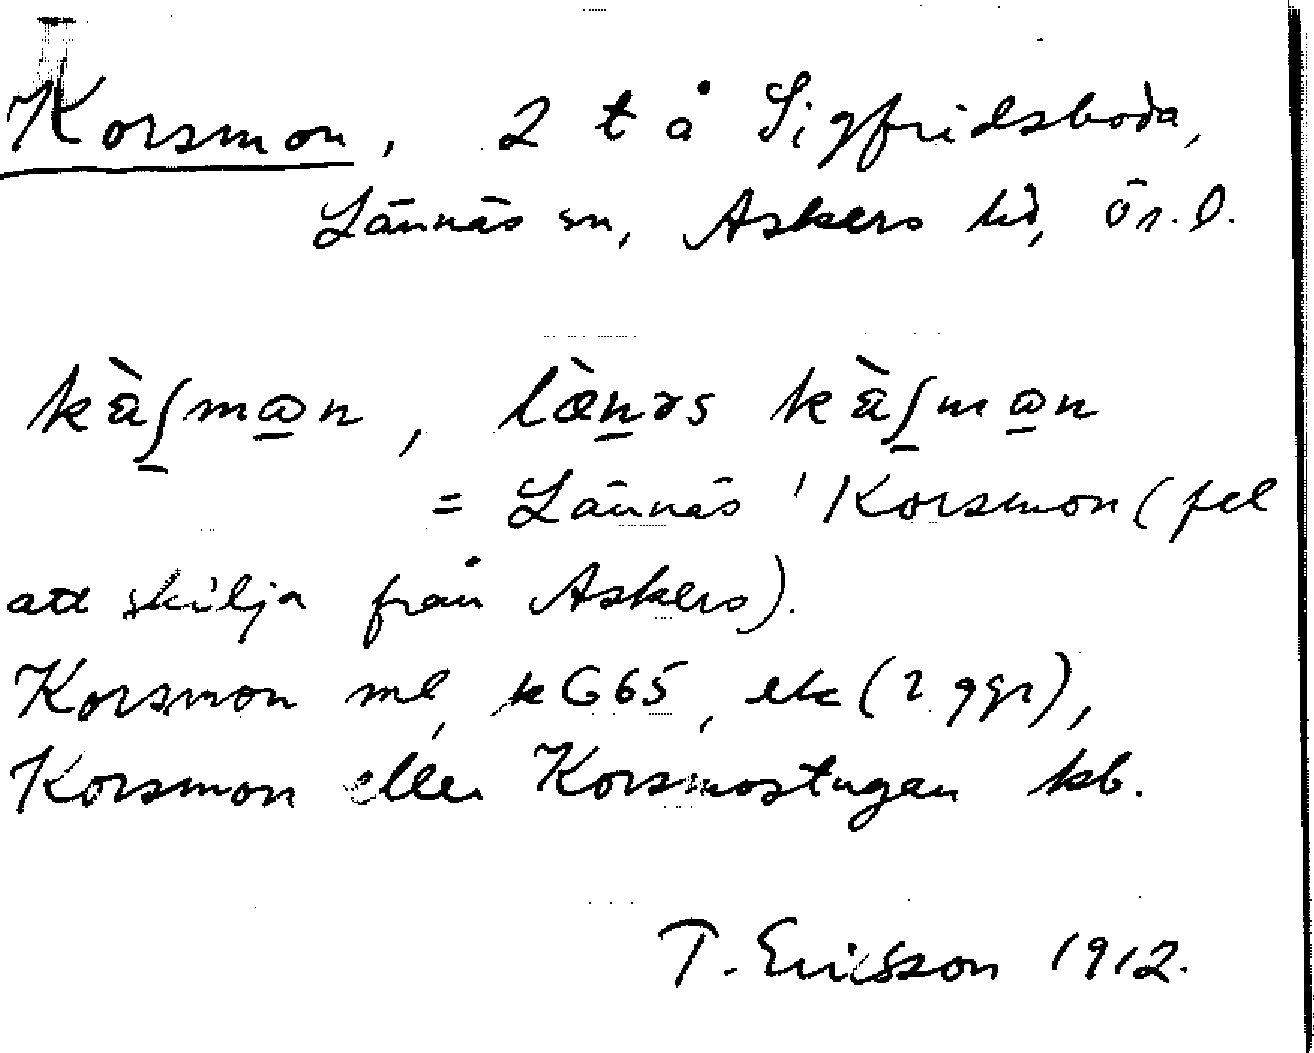 Korsmon, 2 t å Sigfridsboda,
Lännäs sn, Askers hd, Ör. l.
kàʃmɷn, lænəs kàʃmɷn
= Lännäs Korsmon (fel
att skilja från Askers).
Korsmon ml, k G65, ek (2 ggr),
Korsmon eller Korsmostugan kb.
T. Ericsson 1912.